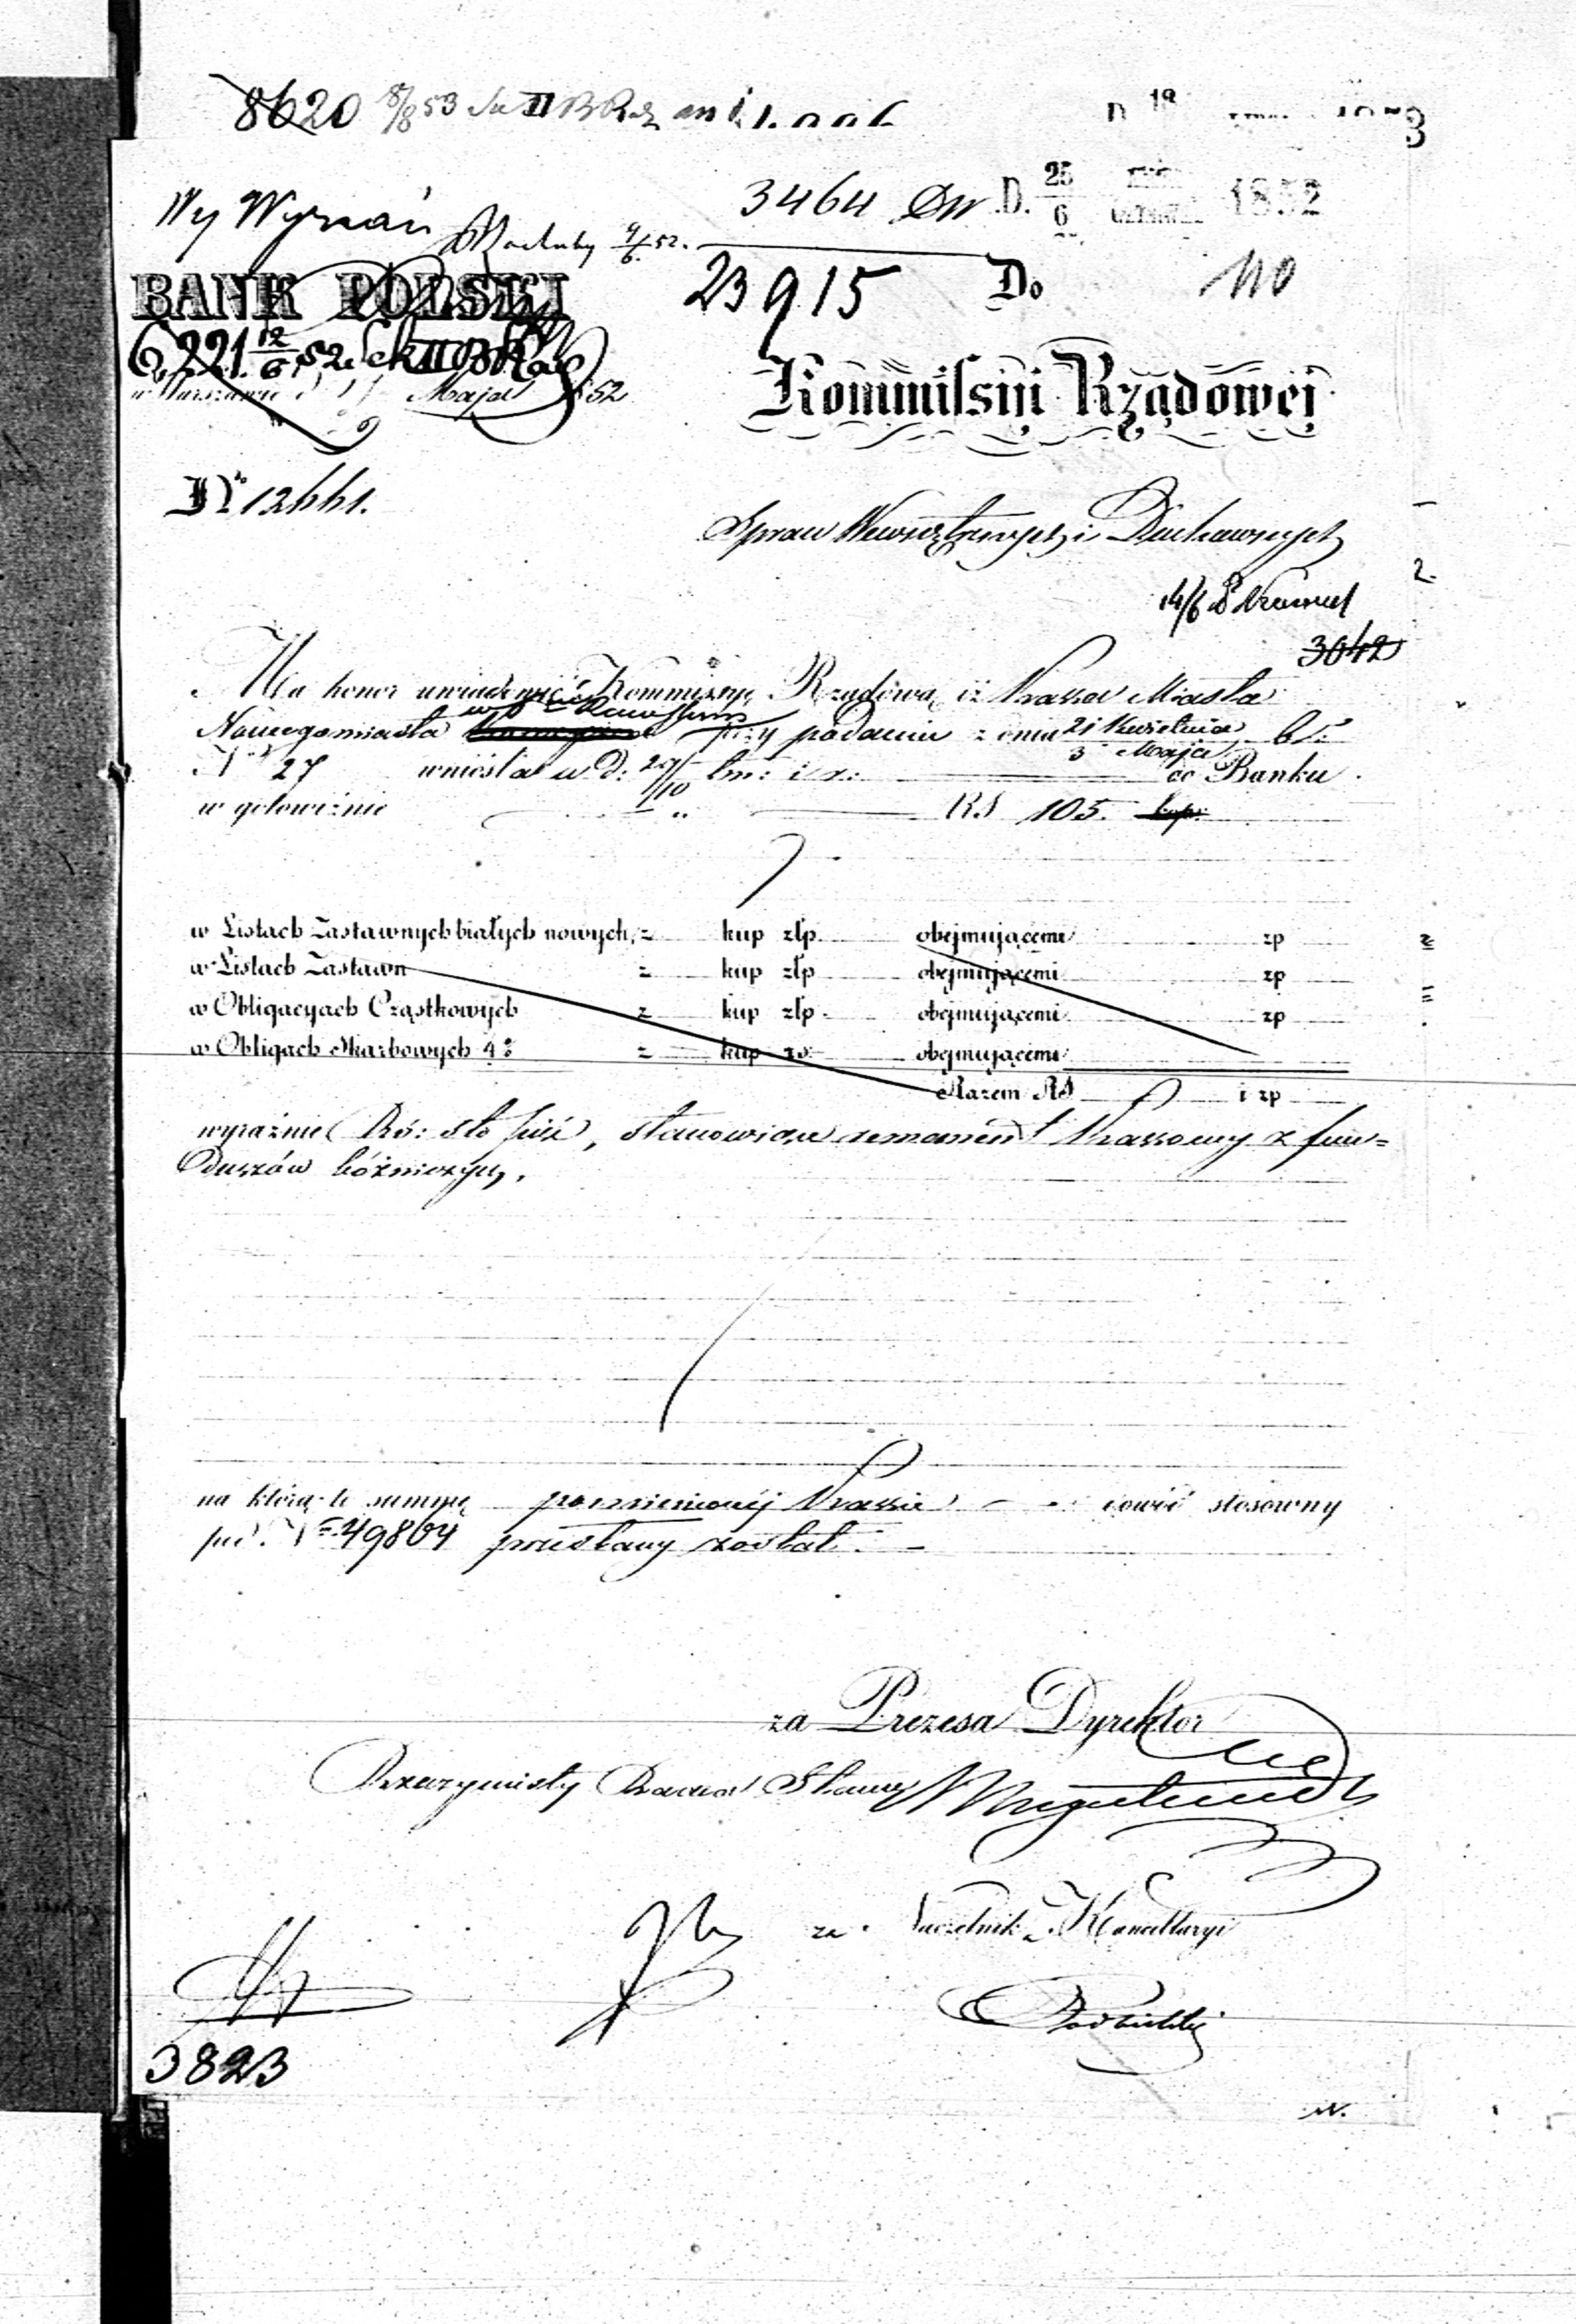 8620 8/8 53
D. 19 3
3464 D. 25/6 1852
Wy Wyznań 9/6 52.
BANK POLSKI
23915 Do 110
6221 12/6 52
w Warszawie d. Maja 1852
Kommissyi Rządowej
No 12661.
Spraw Wewnętrznych i Duchownych
14/6
3042
Ma honor uwiadomić Kommissyę Rządową iż Kassa Miasta
Nowegomiasta przy podaniu z dnia 21 Kwietnia 3 Maja b. r.
No 27 wniosła w d: 29/10 b.m: i r: do Banku
w gotowiźnie RS 105. kop:
w Listach Zastawnych białych nowych, z kup złp obejmującemi zp
w Listach Zastawn z kup złp obejmującemi zp
w Obligacyach Cząstkowych z kup złp obejmującemi zp
w Obligach Skarbowych 4% z kup obejmującemi
Razem RS i zp
wyraźnie (Rs: sto pięć), stanowiące remanent Kassowy z fun=
duszów bóżniczych.
na którą to summę pomienionej Kassie dowód stosowny
pod No 49864 przesłany został.
za Prezesa Dyrektor
Rzeczywisty Radca Stanu
za Naczelnik Kancellaryi
3823